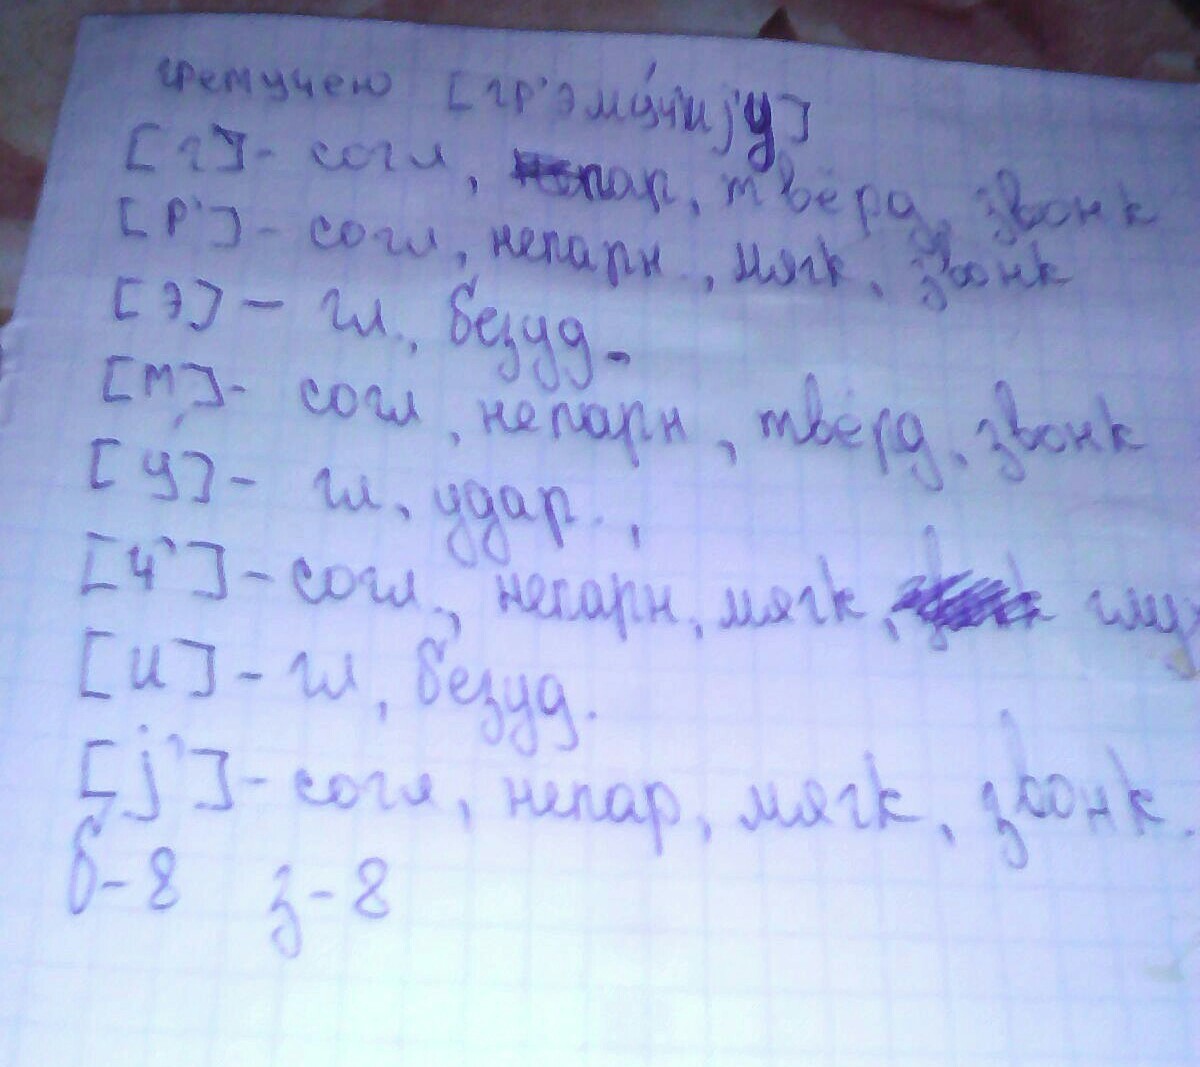 гремучею [гр'эму́ч'иj'у]
[г] - согл, пар, твёрд, звонк
[р'] - согл, непарн, мягк, звонк
[э] - гл., безуд.
[м] - согл, непарн, твёрд, звонк
[у́] - гл, удар.,
[ч'] - согл, непарн, мягк, глух
[и] - гл, безуд.
[j'] - согл, непар, мягк, звонк.
б-8 з-8